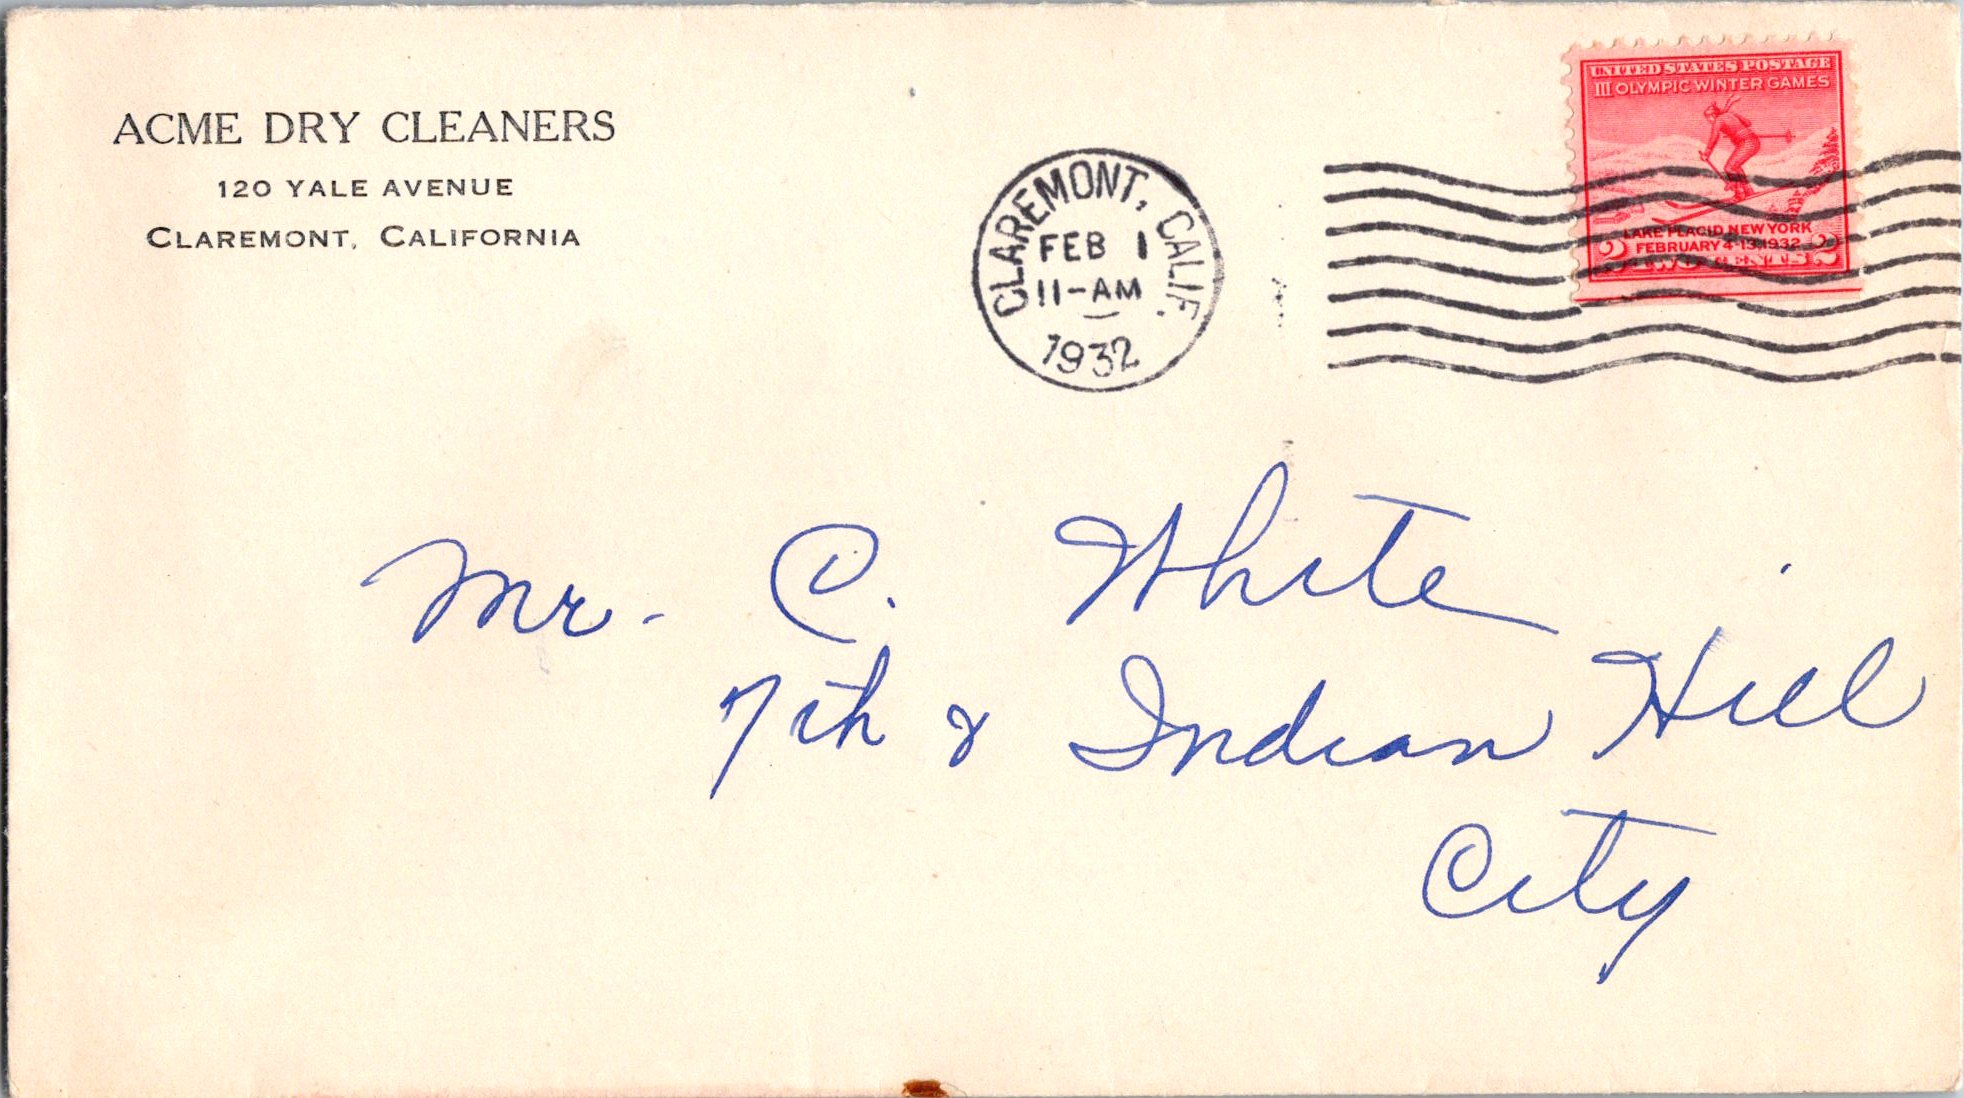 ACME DRY CLEANERS
120 YALE AVENUE
CLAREMONT, CALIFORNIA
CLAREMONT, CALIF.
FEB 1
11-AM
1932
UNITED STATES POSTAGE
III OLYMPIC WINTER GAMES
LAKE PLACID NEW YORK
FEBRUARY 4-13 1932
2 TWO CENTS 2
Mr. C. White
7th & Indian Hill
City